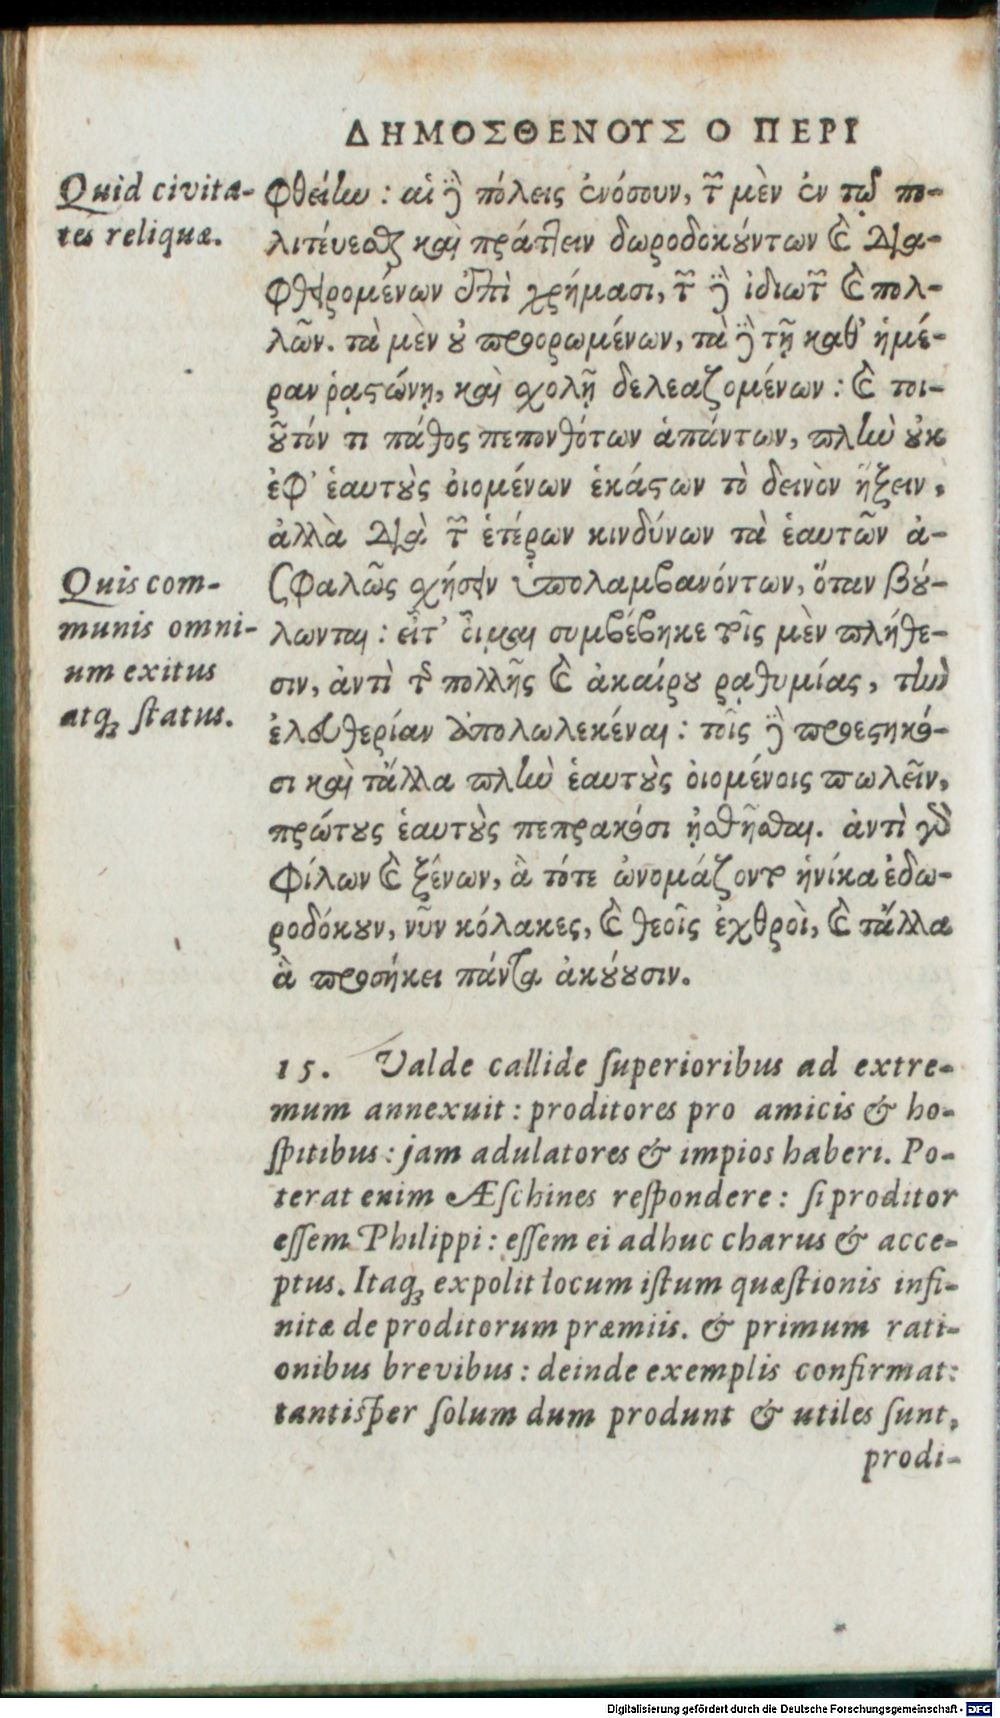 ΔΗΜΟΣΘΕΝΟΥΣ Ο ΠΕΡΙ
Quid civita-
tes reliquæ.
φθείην : αἱ δὲ πόλεις ἐνόσουν, τῶν μὲν ἐν τῷ πο-
λιτεύεσθαι καὶ πράττειν δωροδοκούντων καὶ δια-
φθειρομένων ἐπὶ χρήμασι, τῶν δὲ ἰδιωτῶν καὶ πολ-
λῶν. τὰ μὲν οὐ προορωμένων, τὰ δὲ τῇ καθ' ἡμέ-
ραν ῥᾳστώνῃ, καὶ σχολῇ δελεαζομένων : καὶ τοι-
οῦτόν τι πάθος πεπονθότων ἁπάντων, πλὴν οὐκ
ἐφ' ἑαυτοὺς οἰομένων ἑκάστων τὸ δεινὸν ἥξειν,
ἀλλὰ διὰ τῶν ἑτέρων κινδύνων τὰ ἑαυτῶν ἀ-
Quis com-
munis omni-
um exitus
atq; status.
σφαλῶς σχήσειν ὑπολαμβανόντων, ὅταν βού-
λωνται : εἶτ' οἶμαι συμβέβηκε τοῖς μὲν πλήθε-
σιν, ἀντὶ τῆς πολλῆς καὶ ἀκαίρου ῥαθυμίας, τὴν
ἐλευθερίαν ἀπολωλεκέναι : τοῖς δὲ προεστηκό-
σι καὶ τἄλλα πλὴν ἑαυτοὺς οἰομένοις πωλεῖν,
πρώτους ἑαυτοὺς πεπρακόσι ᾐσθῆσθαι. ἀντὶ γὰρ
φίλων καὶ ξένων, ἃ τότε ὠνομάζοντο ἡνίκα ἐδω-
ροδόκουν, νῦν κόλακες, καὶ θεοῖς ἐχθροὶ, καὶ τἄλλα
ἃ προσήκει πάντα ἀκούουσιν.
15. Valde callide superioribus ad extre-
mum annexuit : proditores pro amicis & ho-
spitibus : jam adulatores & impios haberi. Po-
terat enim Æschines respondere : si proditor
essem Philippi : essem ei adhuc charus & acce-
ptus. Itaq; expolit locum istum quæstionis infi-
nitæ de proditorum præmiis. & primum rati-
onibus brevibus : deinde exemplis confirmat:
tantisper solum dum produnt & utiles sunt,
prodi-
Digitalisierung gefördert durch die Deutsche Forschungsgemeinschaft - DFG